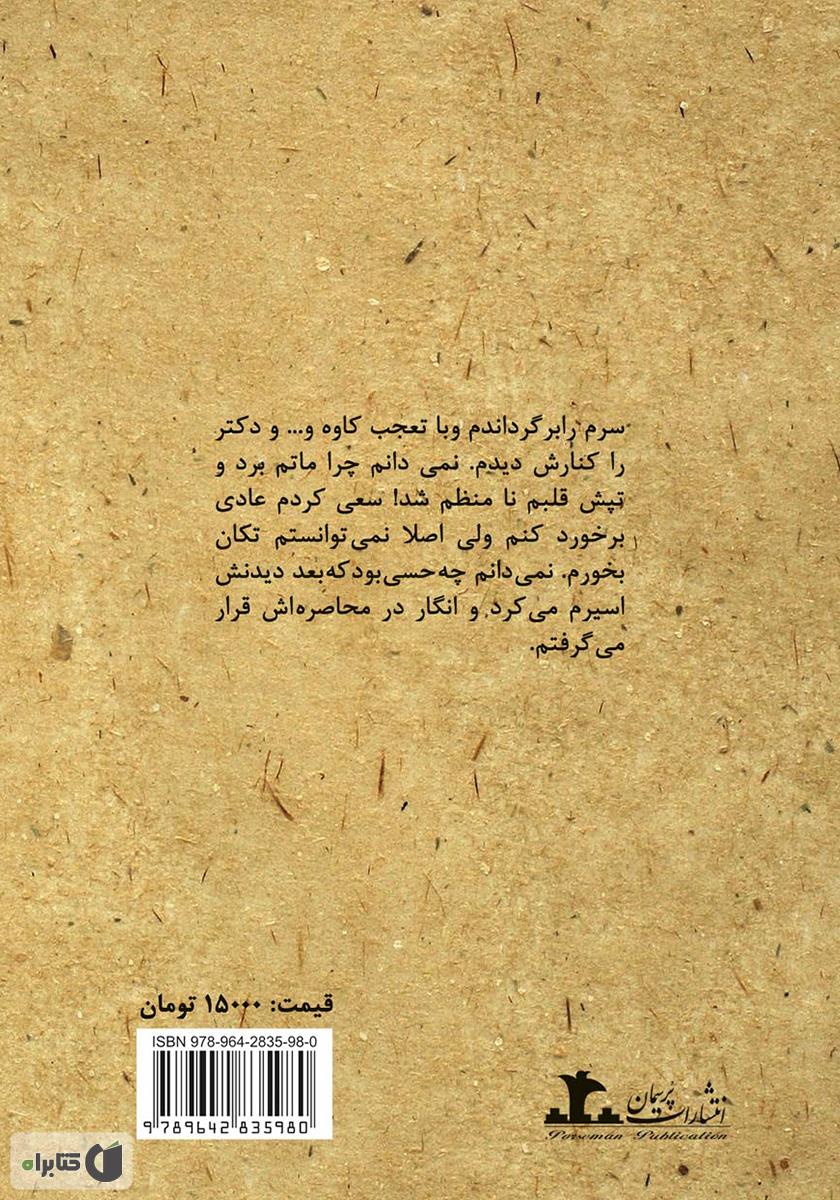 سرم رابرگرداندم وبا تعجب کاوه و... و دکتر
را کنارش دیدم. نمی دانم چرا ماتم برد و
تپش قلبم نا منظم شد! سعی کردم عادی
برخورد کنم ولی اصلا نمی‌توانستم تکان
بخورم. نمی‌دانم چه‌حسی‌بود‌که‌بعد دیدنش
اسیرم می‌کرد و انگار در محاصره‌اش قرار
می‌گرفتم.
قیمت: ۱۵۰۰۰ تومان
ISBN 978-964-2835-98-0
9 789642 835980
انتشارات پُرسمان
Porseman Publication
کتابراه